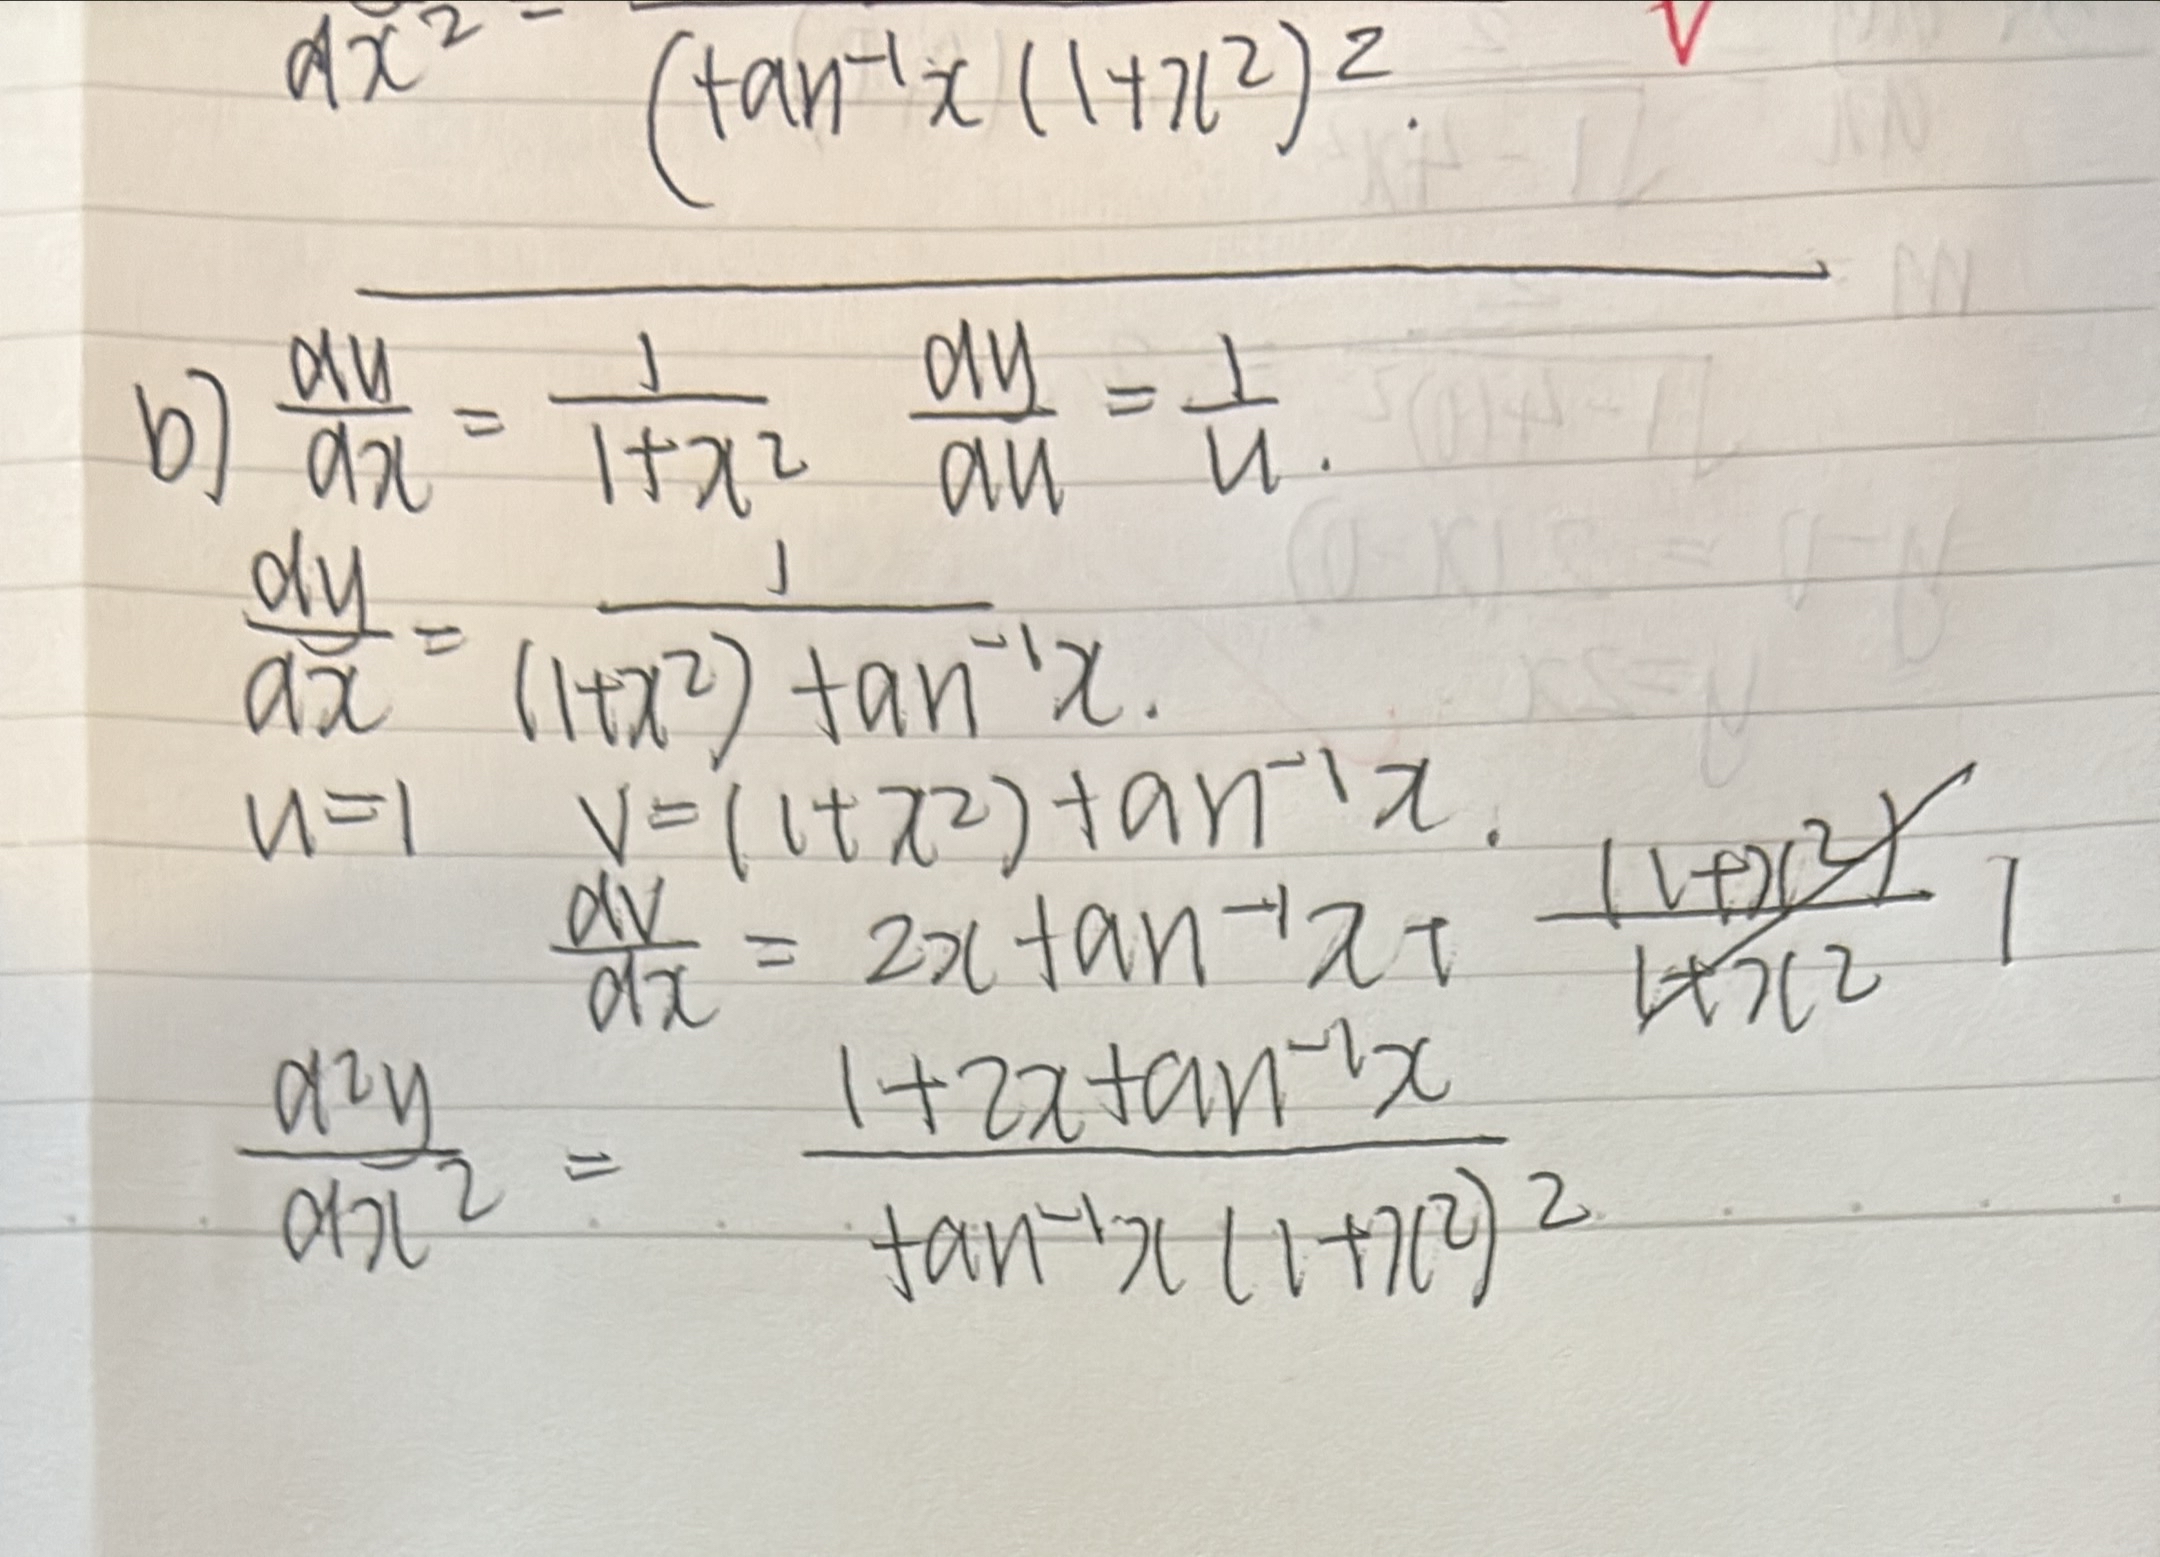 dx² = (tan⁻¹x (1+x²)².
b) du/dx = 1/(1+x²) dy/du = 1/u.
dy/dx = 1/((1+x²) tan⁻¹x).
u=1 v=(1+x²) tan⁻¹x.
dv/dx = 2x tan⁻¹x + (1+x²)/(1+x²) 1
d²y/dx² = (1+2x tan⁻¹x)/(tan⁻¹x (1+x²)²)